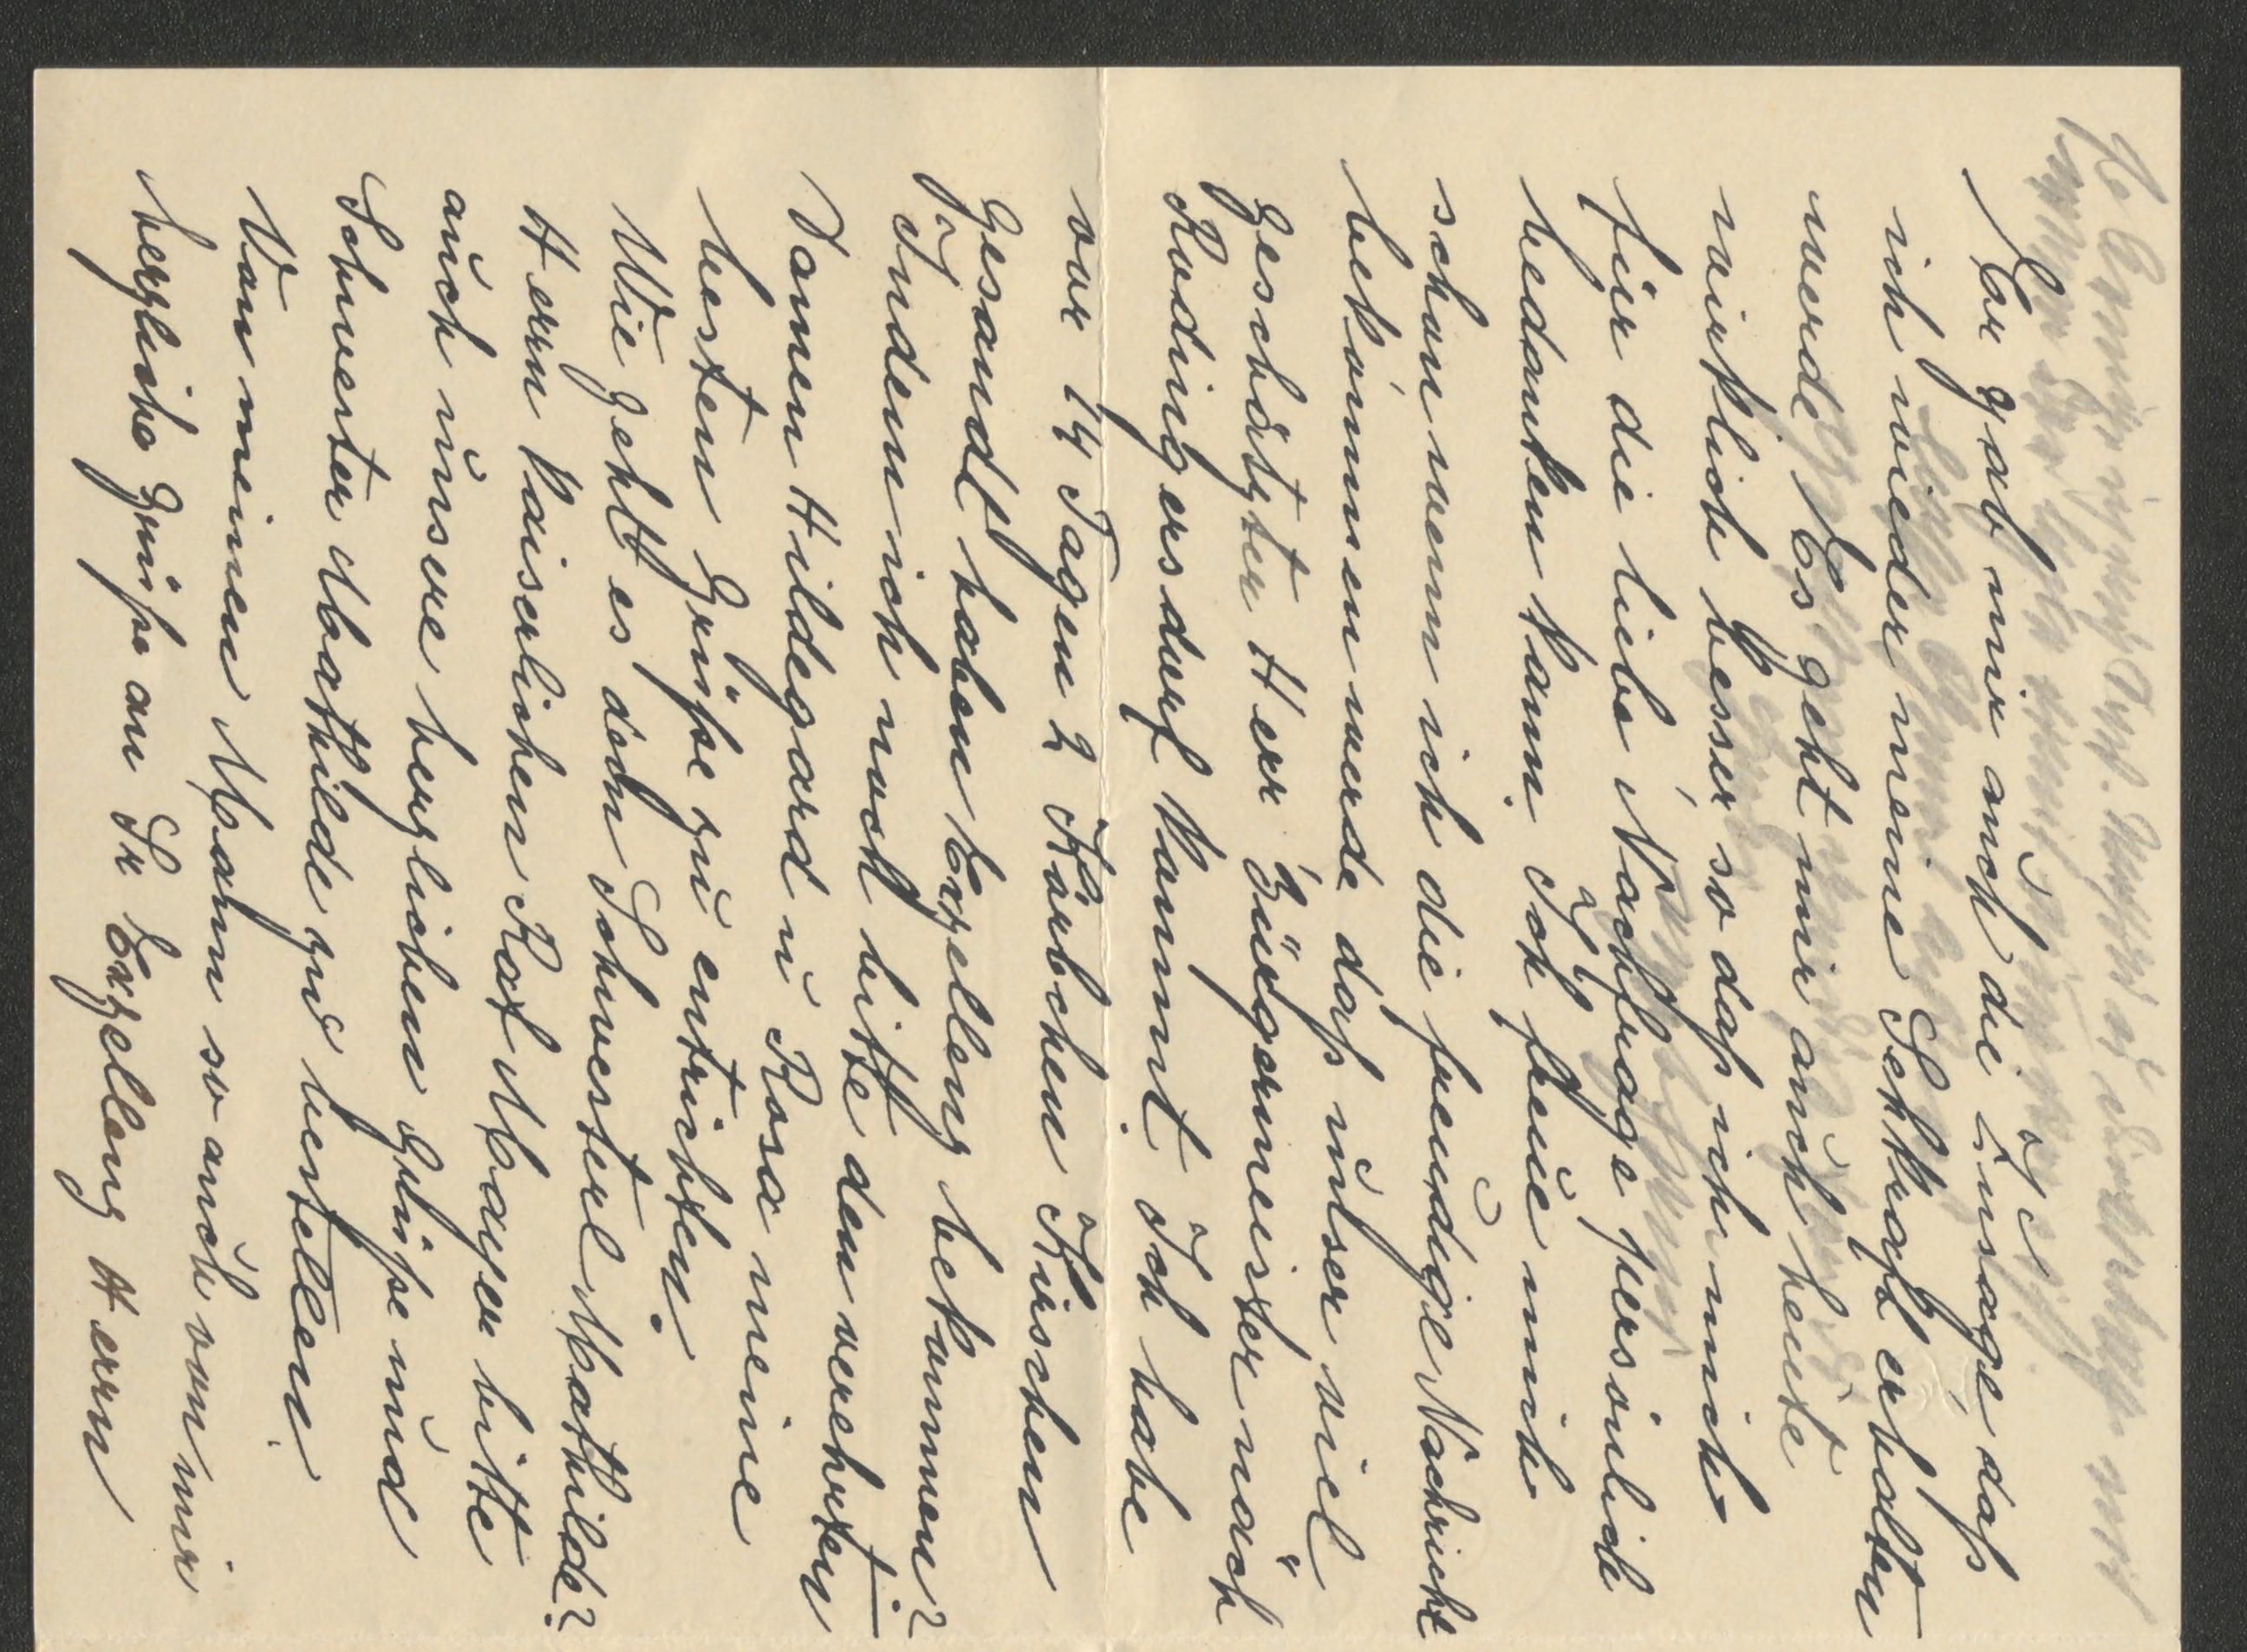 Er gab mir auch die Zusage, daß
ich wieder meine Sehkraft erhalten
werde. Es geht mir auch heute
wirklich besser, so daß ich mich
für die liebe Nachfrage persönlich
bedanken kann. Ich freue mich
schon wenn ich die freudige Nachricht
bekommen werde daß unser viel
geschätzter Herr Bürgermeister nach
Rodingersdorf kommt. Ich habe
vor 14 Tagen 2 Körbchen Kirschen
gesandt haben Exzellenz bekommen?
Indem ich noch bitte den verehrten
Damen Hildegard u Rosa meine
besten Grüße zu entrichten.
Wie geht es den Schwesterl Mathilde?
Herrn kaiserlichen Rat Mayer bitte
auch unsere herzlichen Grüße und
Schwester Mathilde zu bestellen.
Von meinem Mann so auch von mir
herzliche Grüße an Sr Exzellenz Herrn